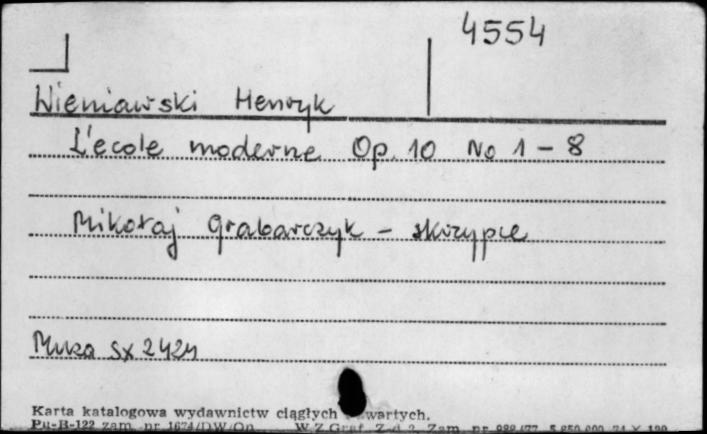 4554
Wieniawski Henryk
L'ecole moderne Op. 10 No 1 - 8
Mikołaj Grabarczyk - skrzypce
Muza Sx 2421
Karta katalogowa wydawnictw ciągłych
Pu-B-122 zam. nr 1674/DW/On W.Z.Graf. Z-d 2. Zam. nr